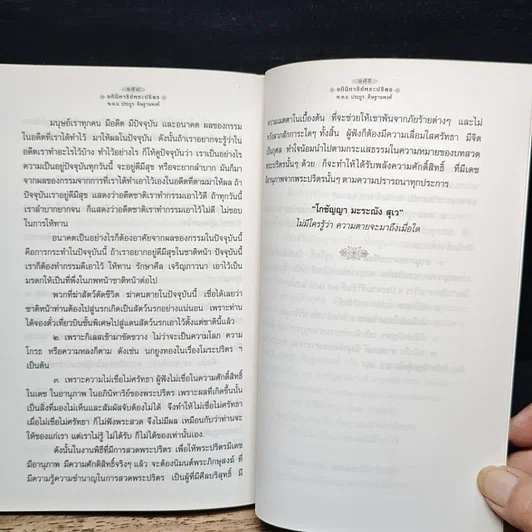 ๑๕๔
อภินิหาริย์พระปริตร
พ.ต.อ. ประยูร คันฐานพงศ์
มนุษย์เราทุกคน มีอดีต มีปัจจุบัน และอนาคต ผลของกรรม
ในอดีตที่เราได้ทำไว้ มาให้ผลในปัจจุบัน ดังนั้นถ้าเราอยากจะรู้ว่าใน
อดีตเราทำอะไรไว้บ้าง ทำไว้อย่างไร ก็ให้ดูปัจจุบันว่า เราเป็นอย่างไร
ความเป็นอยู่ปัจจุบันทุกวันนี้ จะอยู่ดีมีสุข หรือจะยากลำบาก มันก็มา
จากผลของกรรมจากการที่เราได้ทำเอาไว้เองในอดีตที่ตามมาให้ผล ถ้า
ปัจจุบันเราอยู่ดีมีสุข แสดงว่าอดีตชาติเราทำกรรมเอาไว้ดี ถ้าทุกวันนี้
เราลำบากยากจน ก็แสดงว่าอดีตชาติเราทำกรรมเอาไว้ไม่ดี ไม่ชอบ
ในการให้ทาน
อนาคตเป็นอย่างไรก็ต้องอาศัยจากผลของกรรมในปัจจุบันนี้ก็
คือการกระทำในปัจจุบันนี้ ถ้าเราอยากอยู่ดีมีสุขในชาติหน้า ปัจจุบันนี้
เราก็ต้องทำกรรมดีเอาไว้ ให้ทาน รักษาศีล เจริญภาวนา เอาไว้เป็น
มรดกให้เป็นที่พึ่งในภพหน้าชาติหน้าต่อไป
พวกที่ฆ่าสัตว์ตัดชีวิต ฆ่าคนตายในปัจจุบันนี้ เชื่อได้เลยว่า
ชาติหน้าท่านต้องไปสู่นรกเกิดเป็นสัตว์นรกอย่างแน่นอน เพราะท่าน
ได้จองตั๋วเที่ยวบินชั้นพิเศษไปสู่แดนสัตว์นรกเอาไว้ตั้งแต่ชาตินี้แล้ว
๒. เพราะกิเลสเข้ามาขัดขวาง ไม่ว่าจะเป็นความโลภ ความ
โกรธ หรือความหลงก็ตาม ดังเช่น นกยูงทองในเรื่องโมระปริตร ฯ
เป็นต้น
๓. เพราะความไม่เชื่อไม่ศรัทธา ผู้ฟังไม่เชื่อในความศักดิ์สิทธิ์
ในเดช ในอานุภาพ ในอภินิหาริย์ของพระปริตร เพราะผลที่เกิดขึ้นนั้น
เป็นสิ่งที่มองไม่เห็นและสัมผัสจับต้องไม่ได้ จึงทำให้ไม่เชื่อไม่ศรัทธา
เมื่อไม่เชื่อไม่ศรัทธา ก็ไม่ฟังพระสวด จึงไม่มีผล เหมือนกับว่าท่านจะ
ให้ของแก่เรา แต่เราไม่รู้ ไม่ได้รับ ก็ไม่ได้ของเท่านั้นเอง.
ดังนั้นในงานพิธีที่มีการสวดพระปริตร เพื่อให้พระปริตรมีเดช
มีอานุภาพ มีความศักดิ์สิทธิ์จริงๆ แล้ว จะต้องนิมนต์พระภิกษุสงฆ์ ที่
มีความรู้ความชำนาญในการสวดพระปริตร เป็นผู้ที่มีศีลบริสุทธิ์ มี
๑๕๕
อภินิหาริย์พระปริตร
พ.ต.อ. ประยูร คันฐานพงศ์
ความเมตตาในเบื้องต้น ที่จะช่วยให้เขาพ้นจากภัยร้ายต่างๆ และไม่
หวังลาภสักการะใดๆ ทั้งสิ้น ผู้ฟังก็ต้องมีความเลื่อมใสศรัทธา มีจิต
เป็นกุศล ทำใจน้อมนำไปตามกระแสธรรมในความหมายของบทสวด
พระปริตรนั้นๆ ด้วย ก็จะทำให้ได้รับพลังความศักดิ์สิทธิ์ ที่มีเดช
มีอานุภาพจากพระปริตรนั้นๆ ตามความปรารถนาทุกประการ
"โกชัญญา มะระณัง สุเว"
ไม่มีใครรู้ว่า ความตายจะมาถึงเมื่อใด